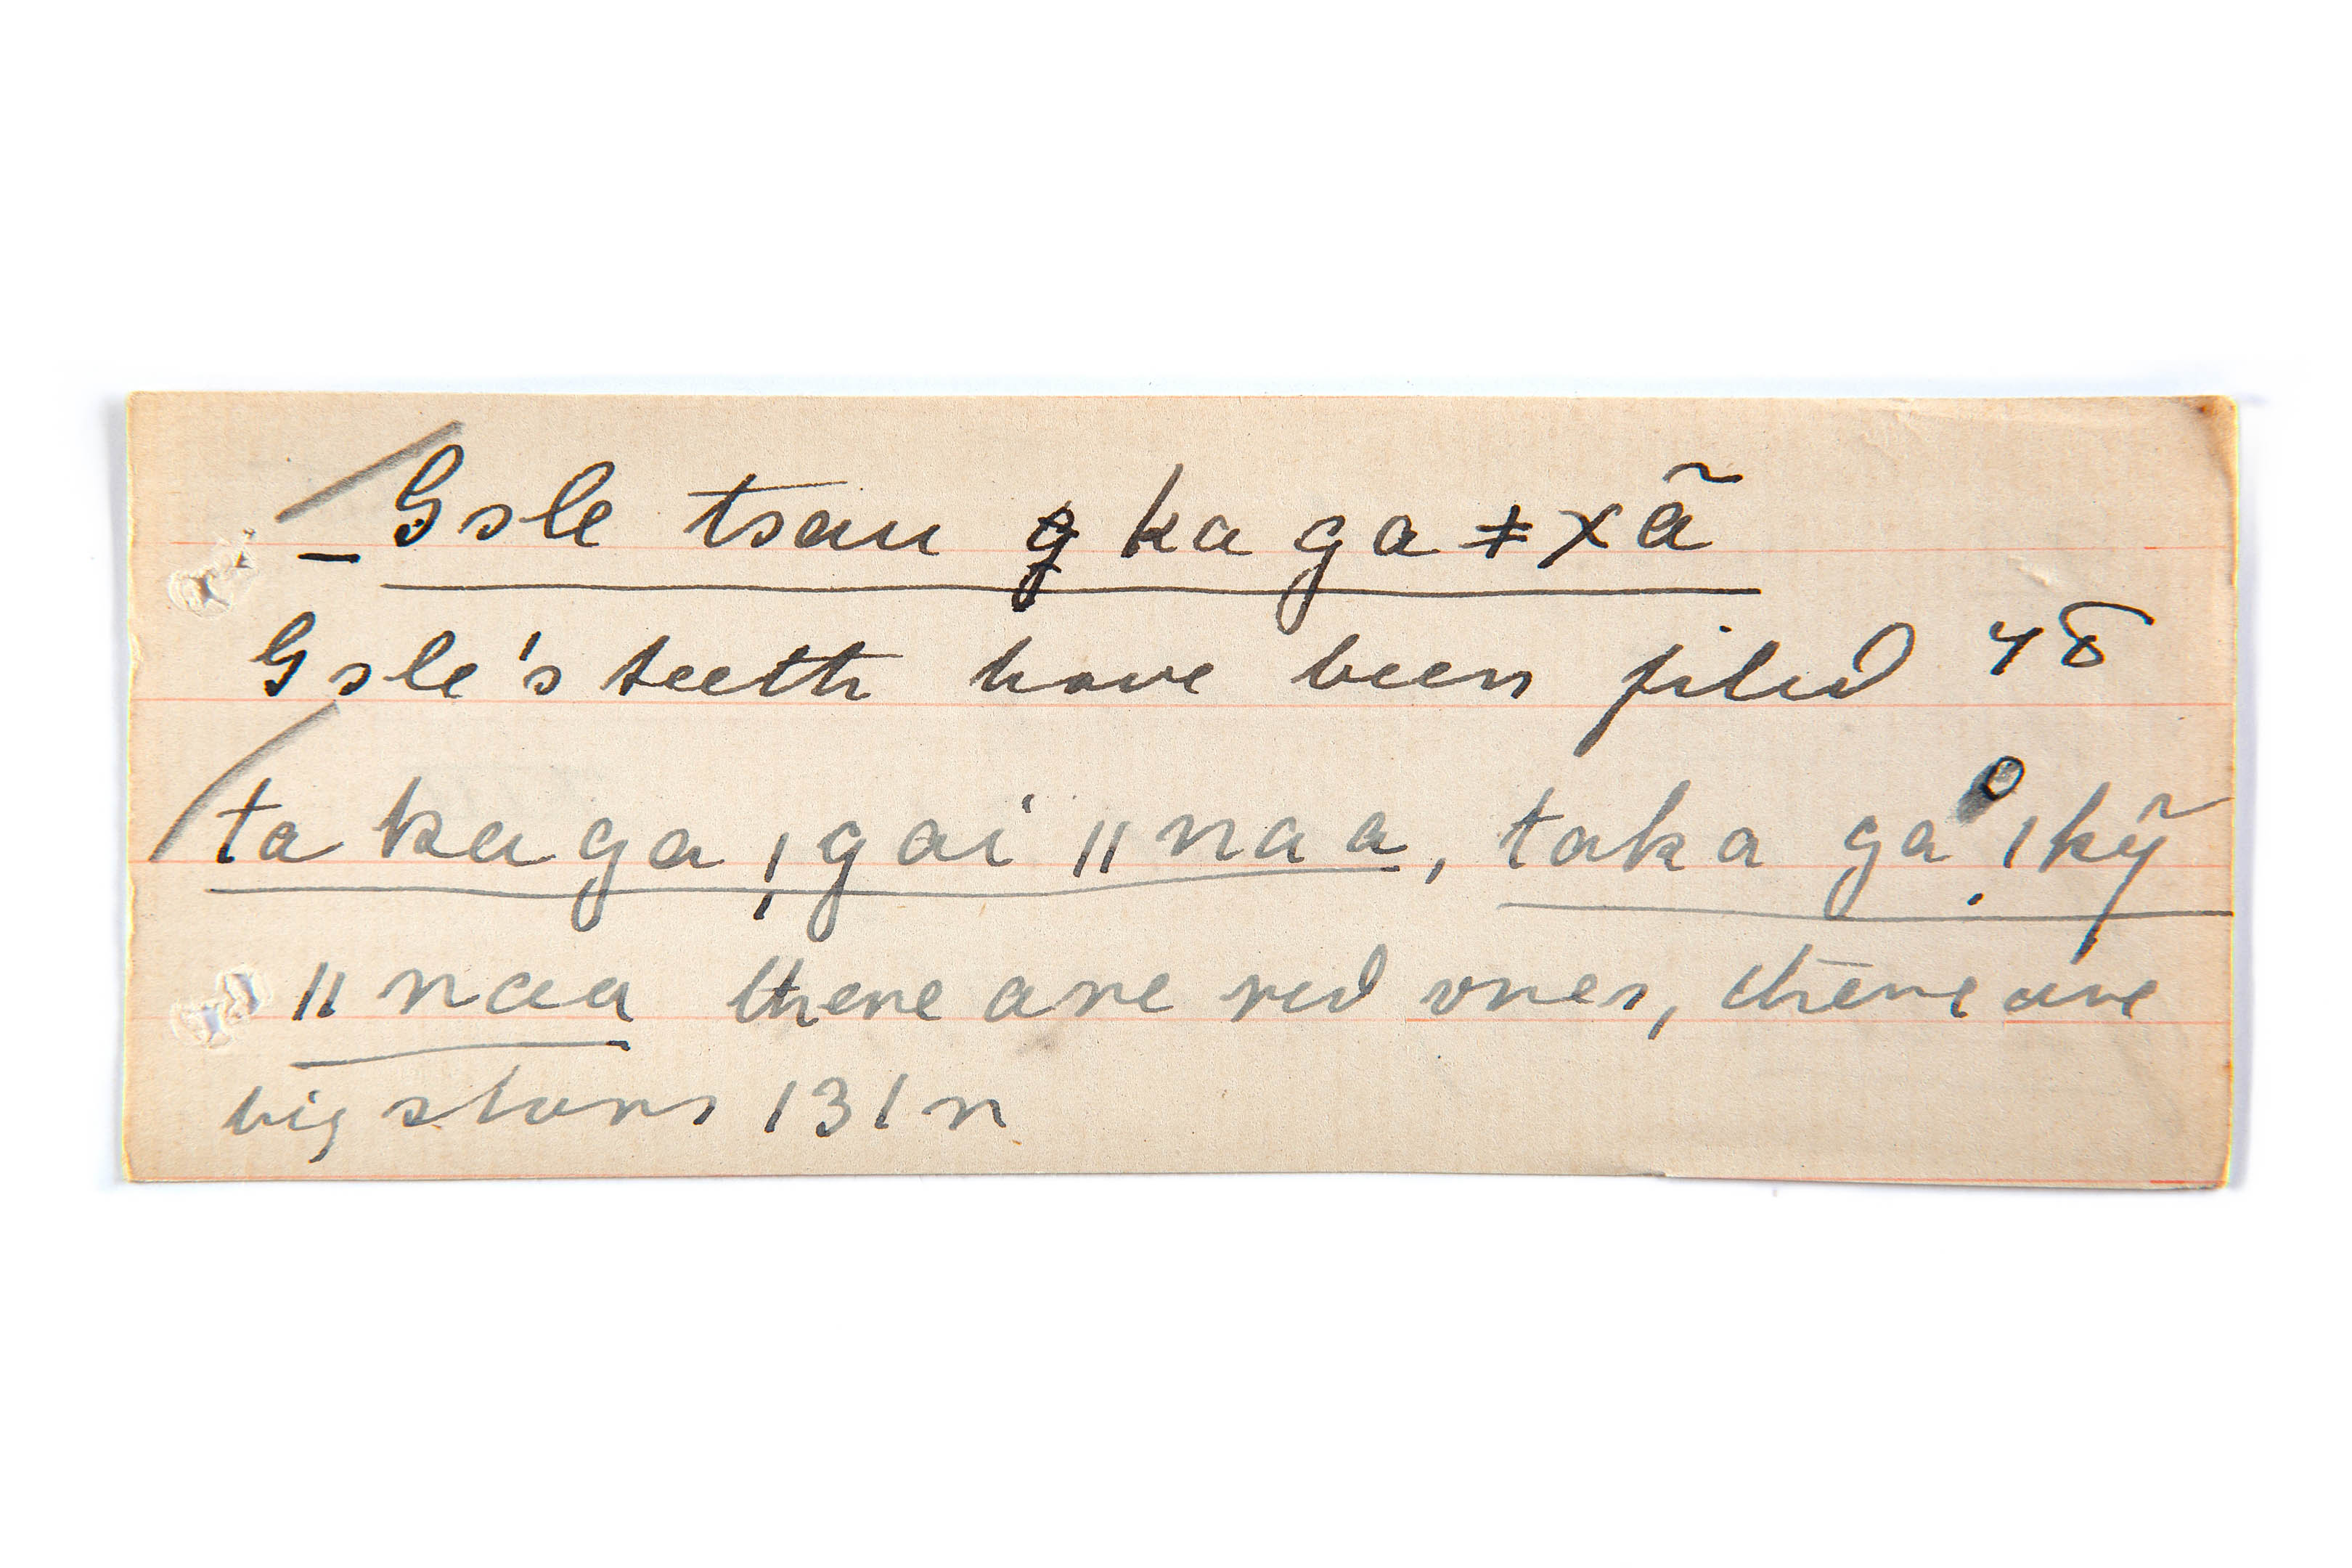 Gsle tsau g ka ga ǂxã
Gsle's teeth have been filed 48
ta ka ga ǃgai ǁnaa, taka ga ǀkỹ
ǁnaa there are red ones, there are
big stars 131n